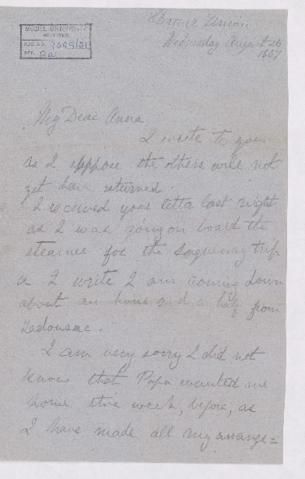 McGILL UNIVERSITY
ARCHIVES
ACC. NO.
REF.
Steamer Union
Wednesday August 26
1867
My Dear Anna
I write to you
as I suppose the others will not
yet have returned.
I received your letta last night
as I was going on board the
steamer for the Saguenay trip
as I write I am coming down
about an hour and a half from
Tadousac.
I am very sorry I did not
know that Papa wanted me
home this week, before, as
I have made all my arrange=